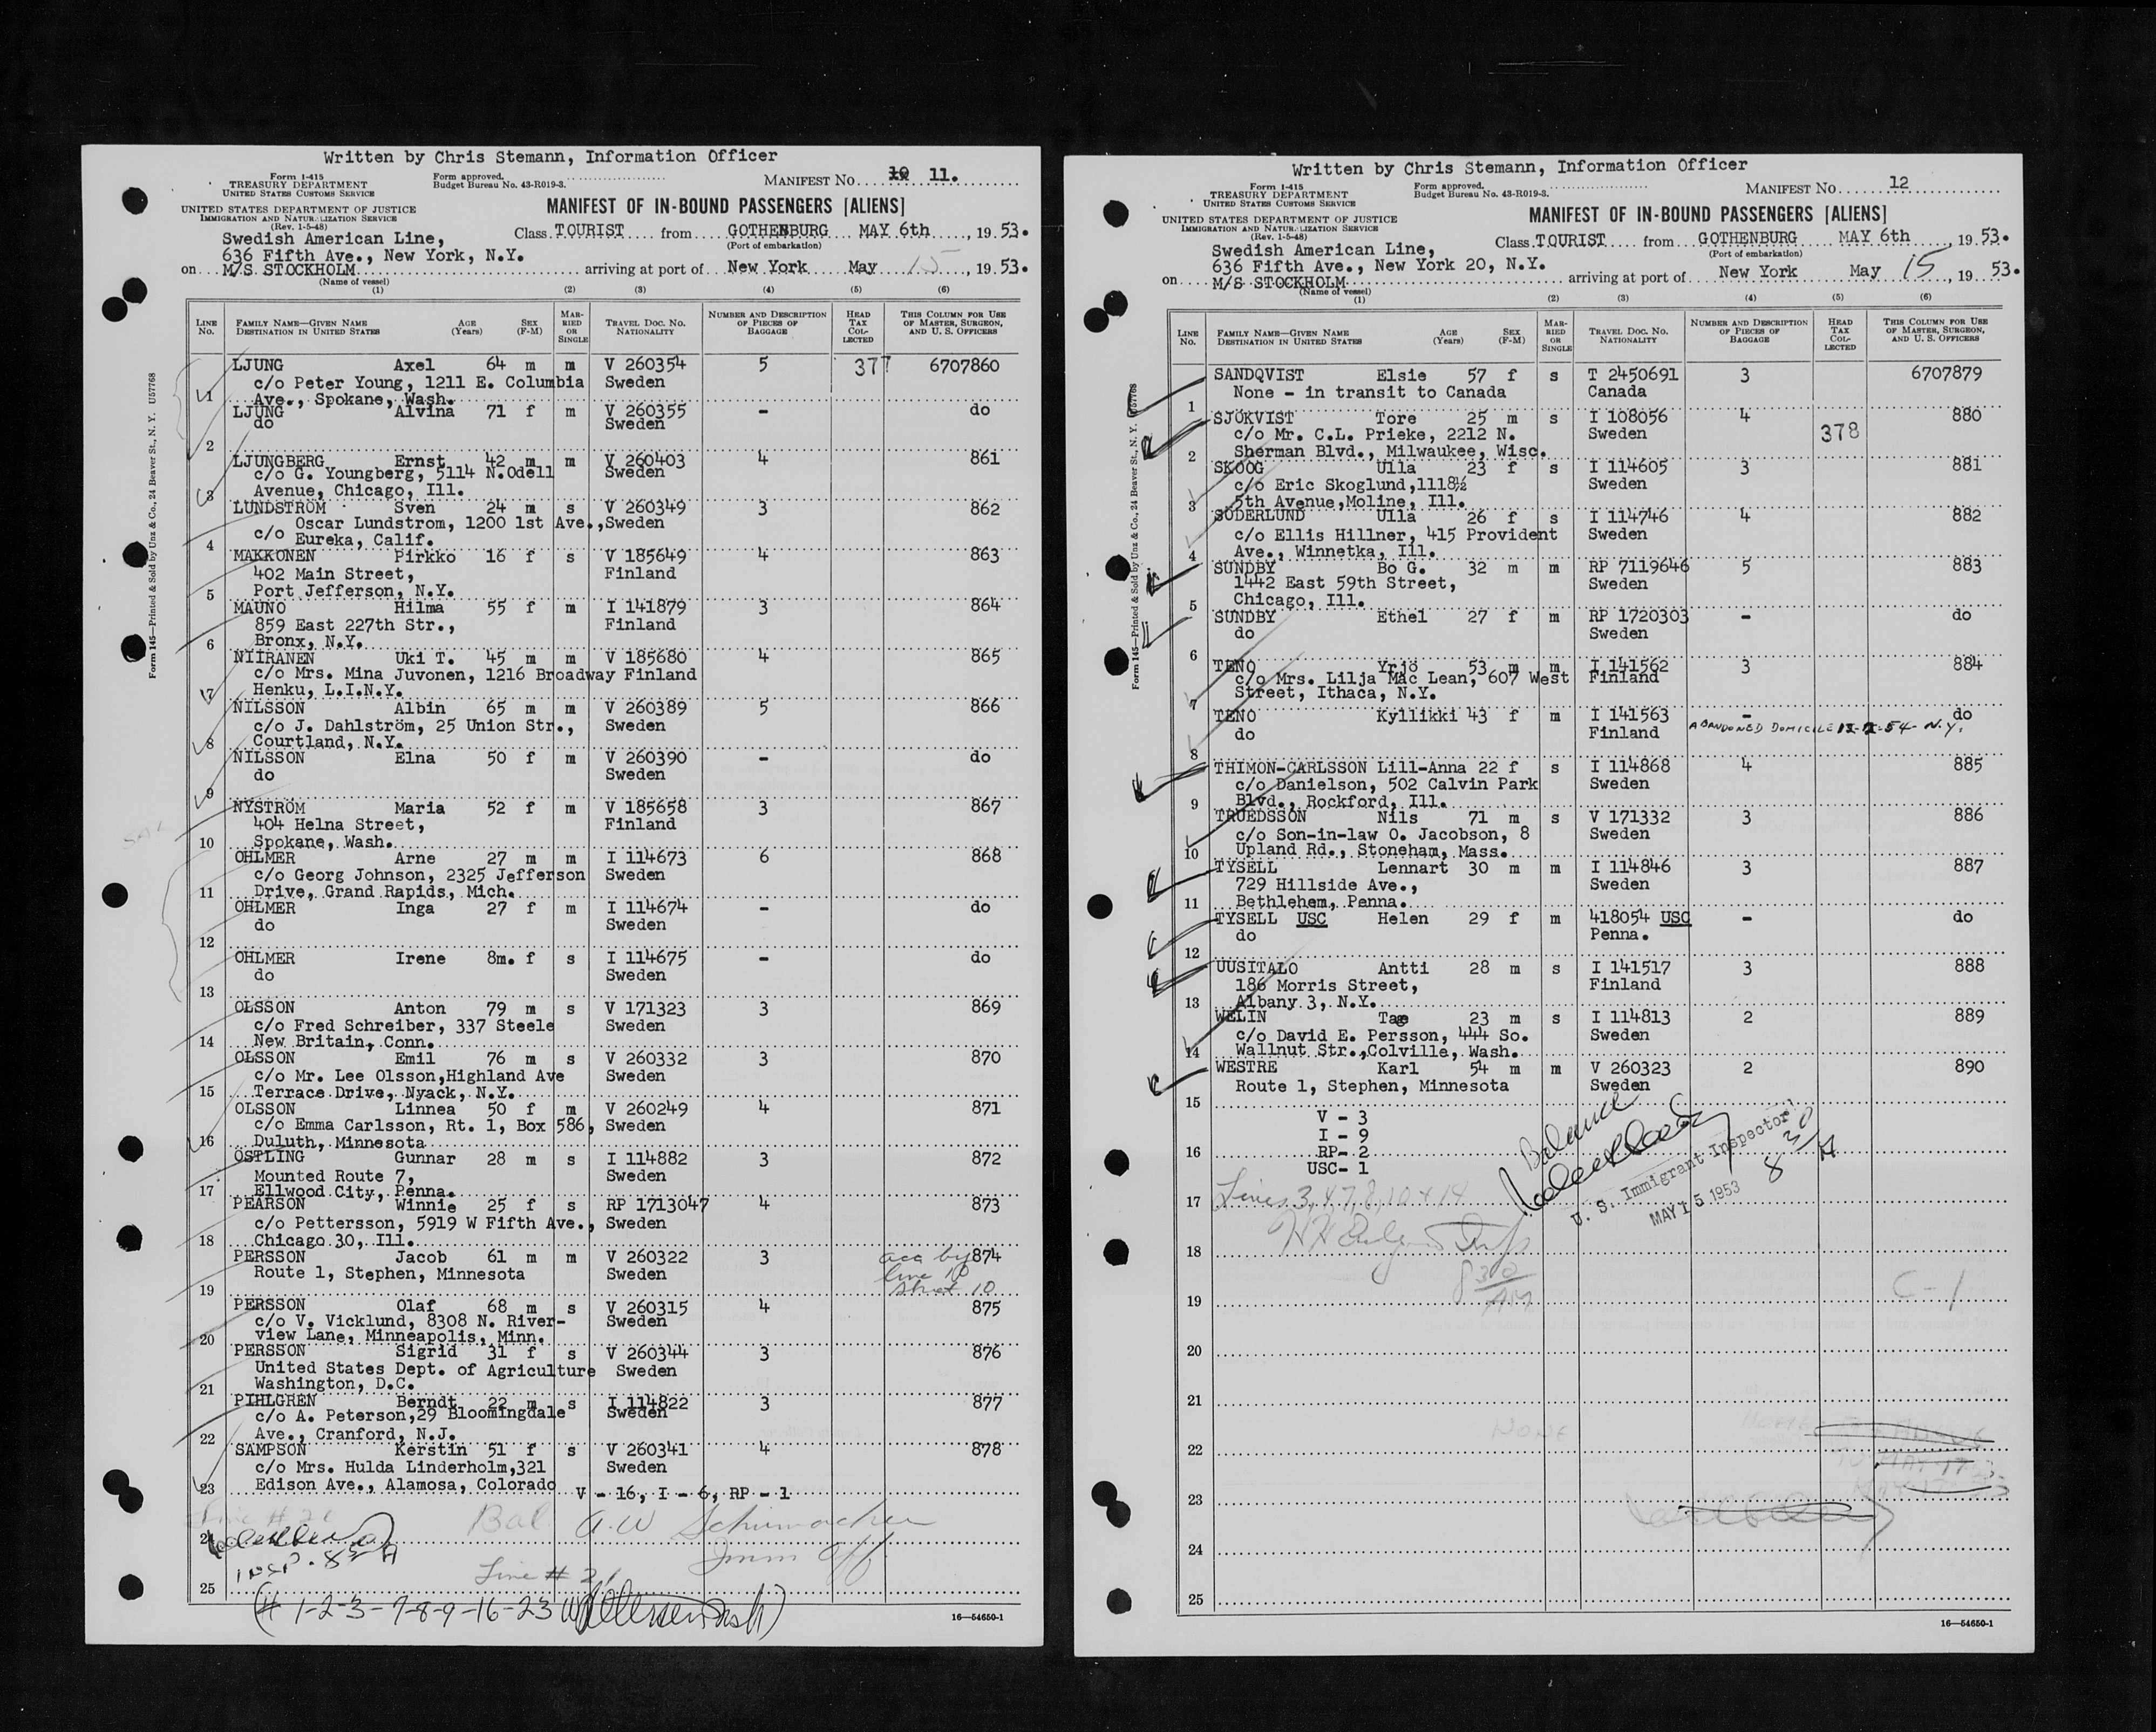 Written by Chris Stemann, Information Officer
Form I-415
TREASURY DEPARTMENT
UNITED STATES CUSTOMS SERVICE
Form approved.
Budget Bureau No. 43-R019-3.
MANIFEST No. 10 11.
UNITED STATES DEPARTMENT OF JUSTICE
IMMIGRATION AND NATURALIZATION SERVICE
(Rev. 1-5-48)
MANIFEST OF IN-BOUND PASSENGERS [ALIENS]
Swedish American Line,
636 Fifth Ave., New York, N.Y.
Class TOURIST from GOTHENBURG MAY 6th, 1953.
(Port of embarkation)
on M/S. STOCKHOLM arriving at port of New York May 15, 1953.
(Name of vessel)
(1) (2) (3) (4) (5) (6)
LINE No. FAMILY NAME—GIVEN NAME DESTINATION IN UNITED STATES AGE (Years) SEX (F-M) MARRIED OR SINGLE TRAVEL DOC. NO. NATIONALITY NUMBER AND DESCRIPTION OF PIECES OF BAGGAGE HEAD TAX COLLECTED THIS COLUMN FOR USE OF MASTER, SURGEON, AND U. S. OFFICERS
LJUNG Axel 64 m m V 260354 5 377 6707860
c/o Peter Young, 1211 E. Columbia Sweden
1 Ave., Spokane, Wash.
LJUNG Alvina 71 f m V 260355 - do
do Sweden
2
LJUNGBERG Ernst 42 m m V 260403 4 861
c/o G. Youngberg, 5114 N.Odell Sweden
3 Avenue, Chicago, Ill.
LUNDSTRÖM Sven 24 m s V 260349 3 862
c/o Oscar Lundstrom, 1200 1st Ave., Sweden
4 Eureka, Calif.
MAKKONEN Pirkko 16 f s V 185649 4 863
402 Main Street, Finland
5 Port Jefferson, N.Y.
MAUNO Hilma 55 f m I 141879 3 864
859 East 227th Str., Finland
6 Bronx, N.Y.
NIIRANEN Uki T. 45 m m V 185680 4 865
c/o Mrs. Mina Juvonen, 1216 Broadway Finland
7 Henku, L.I.N.Y.
NILSSON Albin 65 m m V 260389 5 866
c/o J. Dahlström, 25 Union Str., Sweden
8 Courtland, N.Y.
NILSSON Elna 50 f m V 260390 - do
do Sweden
9
NYSTRÖM Maria 52 f m V 185658 3 867
404 Helna Street, Finland
10 Spokane, Wash.
OHLMER Arne 27 m m I 114673 6 868
c/o Georg Johnson, 2325 Jefferson Sweden
11 Drive, Grand Rapids, Mich.
OHLMER Inga 27 f m I 114674 - do
do Sweden
12
OHLMER Irene 8m. f s I 114675 - do
do Sweden
13
OLSSON Anton 79 m s V 171323 3 869
c/o Fred Schreiber, 337 Steele Sweden
14 New Britain, Conn.
OLSSON Emil 76 m s V 260332 3 870
c/o Mr. Lee Olsson,Highland Ave Sweden
15 Terrace Drive, Nyack, N.Y.
OLSSON Linnea 50 f m V 260249 4 871
c/o Emma Carlsson, Rt. 1, Box 586, Sweden
16 Duluth, Minnesota
ÖSTLING Gunnar 28 m s I 114882 3 872
Mounted Route 7, Sweden
17 Ellwood City, Penna.
PEARSON Winnie 25 f s RP 1713047 4 873
c/o Pettersson, 5919 W Fifth Ave., Sweden
18 Chicago 30, Ill.
PERSSON Jacob 61 m m V 260322 3 acc by 874
Route 1, Stephen, Minnesota Sweden line 10
19 sheet 10
PERSSON Olaf 68 m s V 260315 4 875
c/o V. Vicklund, 8308 N. River- Sweden
20 view Lane, Minneapolis, Minn.
PERSSON Sigrid 31 f s V 260344 3 876
United States Dept. of Agriculture Sweden
21 Washington, D.C.
PIHLGREN Berndt 22 m s I 114822 3 877
c/o A. Peterson,29 Bloomingdale Sweden
22 Ave., Cranford, N.J.
SAMPSON Kerstin 51 f s V 260341 4 878
c/o Mrs. Hulda Linderholm,321 Sweden
23 Edison Ave., Alamosa, Colorado
V - 16, I - 6, RP - 1
Bal A.W Schumacher
24 Imm Off.
Line # 21
25
(# 1-2-3-7-8-9-16-23
16—54650-1
Form 145—Printed & Sold by Unz & Co., 24 Beaver St., N. Y. U57768
Written by Chris Stemann, Information Officer
Form I-415
TREASURY DEPARTMENT
UNITED STATES CUSTOMS SERVICE
Form approved.
Budget Bureau No. 43-R019-3.
MANIFEST No. 12
UNITED STATES DEPARTMENT OF JUSTICE
IMMIGRATION AND NATURALIZATION SERVICE
(Rev. 1-5-48)
MANIFEST OF IN-BOUND PASSENGERS [ALIENS]
Swedish American Line,
636 Fifth Ave., New York 20, N.Y.
Class TOURIST from GOTHENBURG MAY 6th, 1953.
(Port of embarkation)
on M/S STOCKHOLM arriving at port of New York May 15, 1953.
(Name of vessel)
(1) (2) (3) (4) (5) (6)
LINE No. FAMILY NAME—GIVEN NAME DESTINATION IN UNITED STATES AGE (Years) SEX (F-M) MARRIED OR SINGLE TRAVEL DOC. NO. NATIONALITY NUMBER AND DESCRIPTION OF PIECES OF BAGGAGE HEAD TAX COLLECTED THIS COLUMN FOR USE OF MASTER, SURGEON, AND U. S. OFFICERS
SANDQVIST Elsie 57 f s T 2450691 3 6707879
None - in transit to Canada Canada
1
SJÖKVIST Tore 25 m s I 108056 4 880
c/o Mr. C.L. Prieke, 2212 N. Sweden 378
2 Sherman Blvd., Milwaukee, Wisc.
SKOOG Ulla 23 f s I 114605 3 881
c/o Eric Skoglund,1118½ Sweden
3 5th Avenue,Moline, Ill.
SÖDERLUND Ulla 26 f s I 114746 4 882
c/o Ellis Hillner, 415 Provident Sweden
4 Ave., Winnetka, Ill.
SUNDBY Bo G. 32 m m RP 7119646 5 883
1442 East 59th Street, Sweden
5 Chicago, Ill.
SUNDBY Ethel 27 f m RP 1720303 - do
do Sweden
6
TENO Yrjö 53 m m I 141562 3 884
c/o Mrs. Lilja Mac Lean, 607 West Finland
7 Street, Ithaca, N.Y.
TENO Kyllikki 43 f m I 141563 - do
do Finland ABANDONED DOMICILE 54- N.Y.
8
THIMON-CARLSSON Lill-Anna 22 f s I 114868 4 885
c/o Danielson, 502 Calvin Park Sweden
9 Blvd., Rockford, Ill.
TRUEDSSON Nils 71 m s V 171332 3 886
c/o Son-in-law O. Jacobson, 8 Sweden
10 Upland Rd., Stoneham, Mass.
TYSELL Lennart 30 m m I 114846 3 887
729 Hillside Ave., Sweden
11 Bethlehem, Penna.
TYSELL USC Helen 29 f m 418054 USC - do
do Penna.
12
UUSITALO Antti 28 m s I 141517 3 888
186 Morris Street, Finland
13 Albany 3, N.Y.
WELIN Tage 23 m s I 114813 2 889
c/o David E. Persson, 444 So. Sweden
14 Wallnut Str.,Colville, Wash.
WESTRE Karl 54 m m V 260323 2 890
Route 1, Stephen, Minnesota Sweden
15
V - 3
I - 9
16 RP- 2
USC- 1
Balance
U. S. Immigrant Inspector
MAY 15 1953
8 30 A
17 Lines 3, 4, 7, 8, 10 + 14
18
8 30 AM
19 C-1
20
21
NONE
22
23
24
25
16—54650-1
Form 145—Printed & Sold by Unz & Co., 24 Beaver St., N. Y. U57768